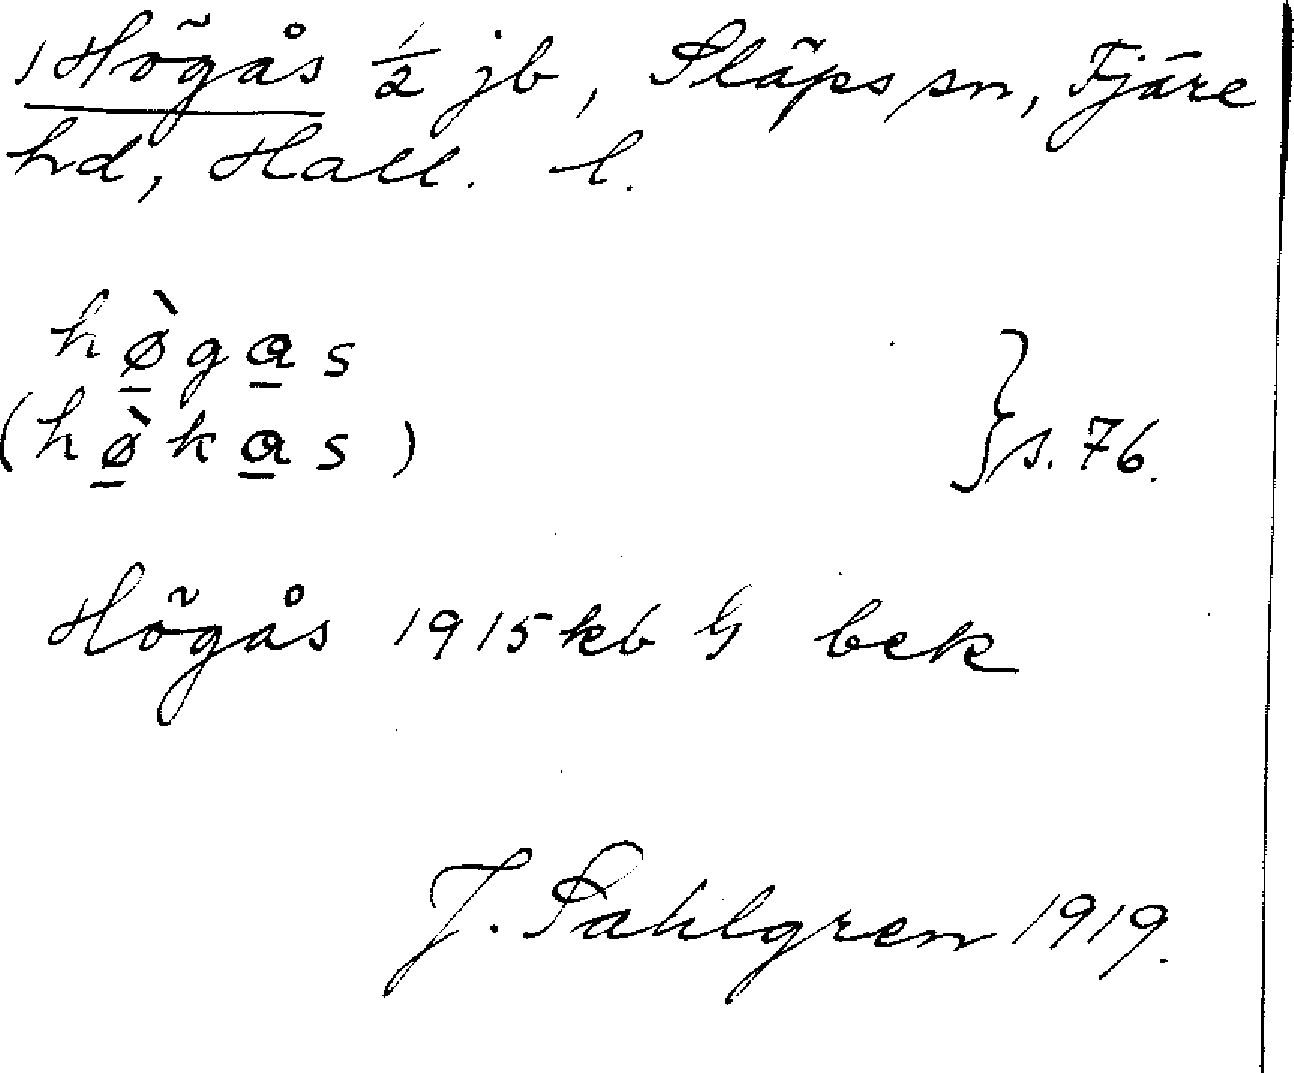 Högås ½ jb, Släps sn, Fjäre
hd, Hall. l.
hø̱̀ga̱s
(hø̱̀ka̱s) } s. 76.
Högås 1915 kb bek
J. Sahlgren 1919.